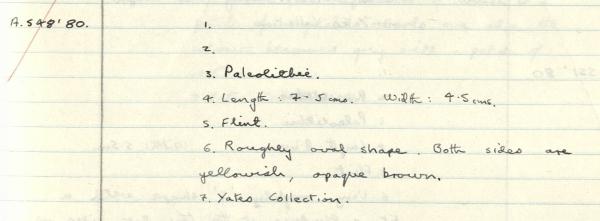 A.548'80.
1.
2.
3. Paleolithic.
4. Length: 7.5cms. Width: 4.5cms.
5. Flint.
6. Roughly oval shape. Both sides are
yellowish, opaque brown.
7. Yates Collection.